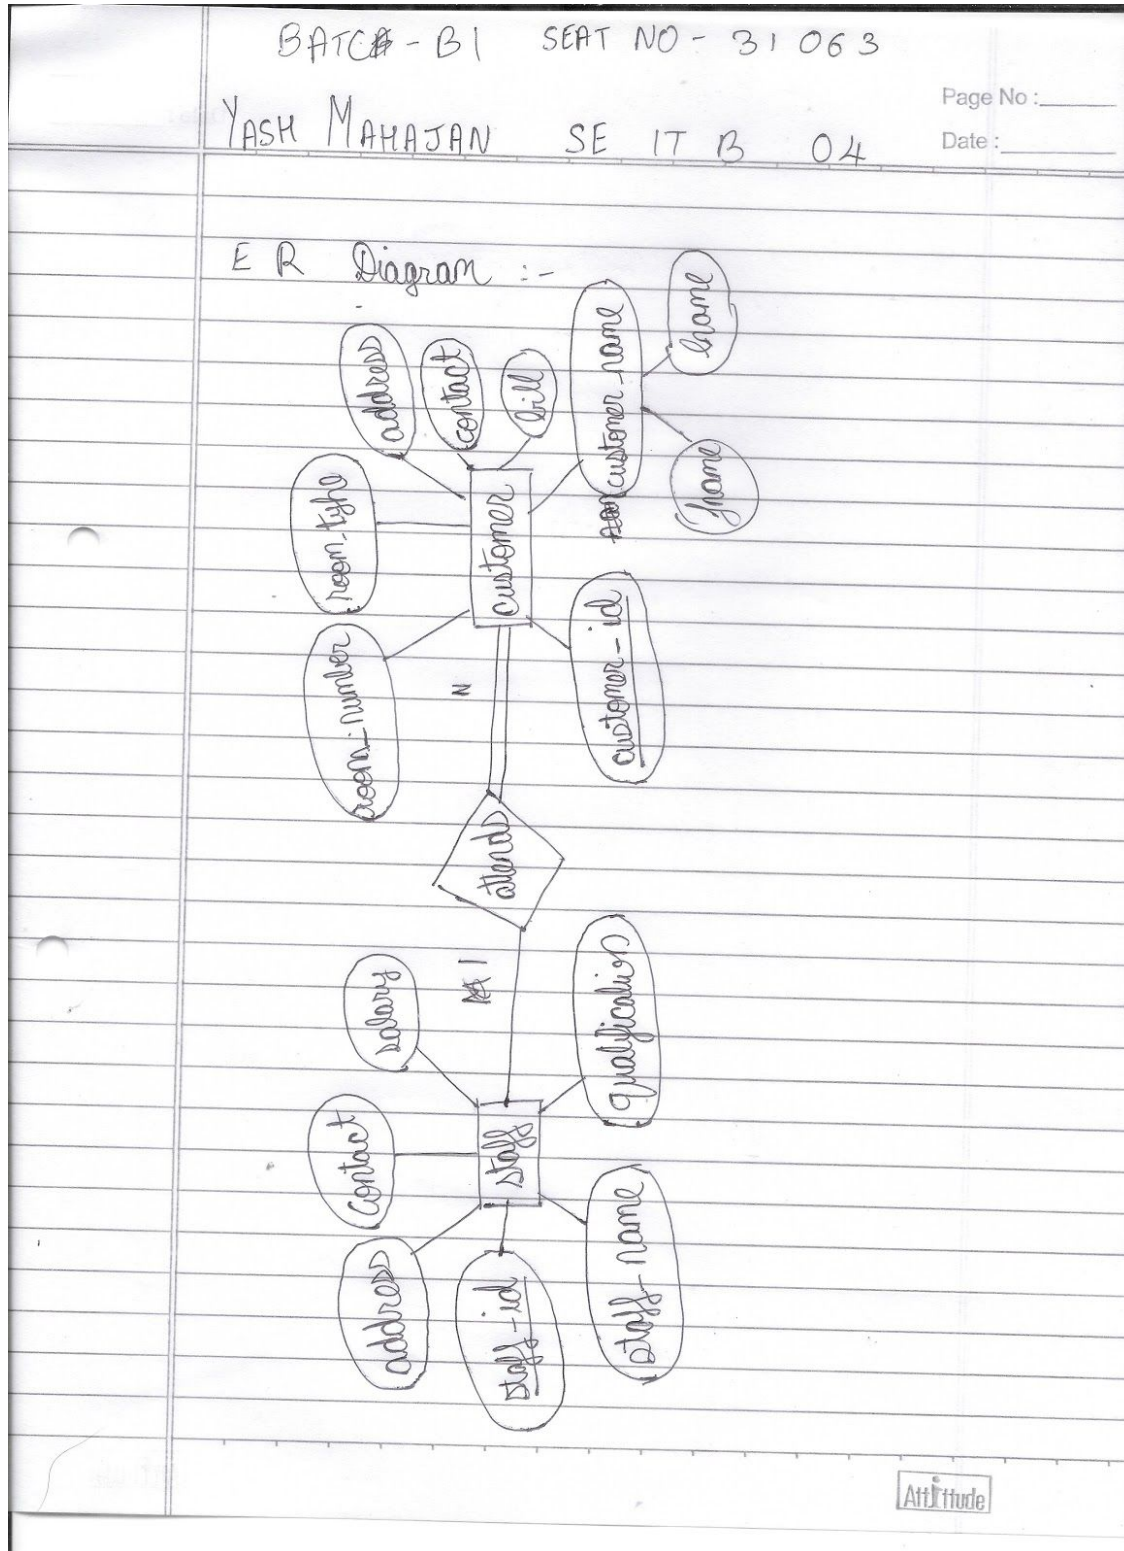 BATCH - B1 SEAT NO - 31063
Page No :
YASH MAHAJAN SE IT B 04
Date :
E R Diagram :-
address
contact
bill
customer_name
lname
fname
room_type
customer
room_number
N
customer-id
attends
salary
1
qualification
contact
staff
address
staff-id
staff-name
Attitude